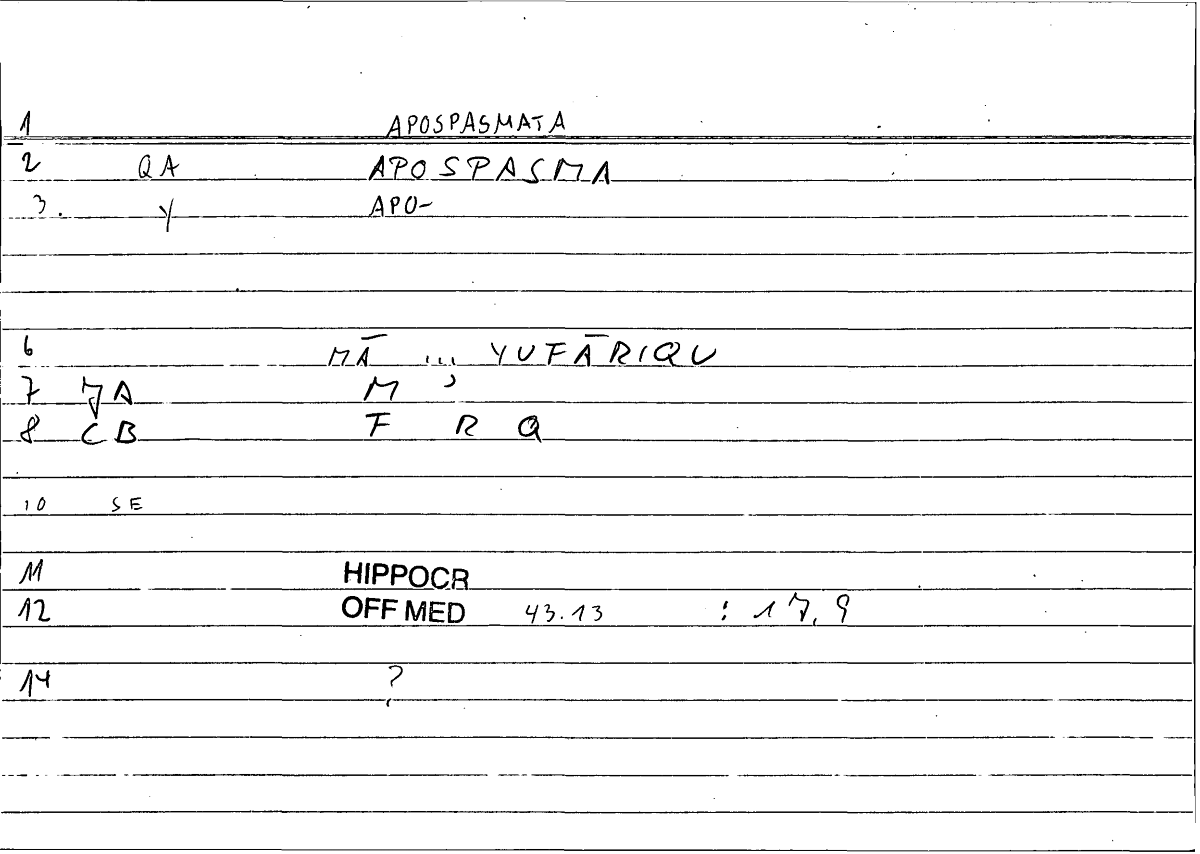 1 APOSPASMATA
2 QA APOSPASMA
3. Y APO-
6 MĀ ... YUFĀRIQU
7 JA M ʾ
8 CB F R Q
10 SE
11 HIPPOCR
12 OFF MED 43.13 : 17,9
14 ?